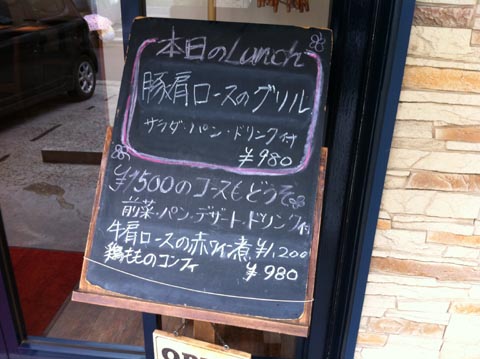 本日のLunch
豚肩ロースのグリル
サラダ・パン・ドリンク付
¥980
¥1500のコースもどうぞ
前菜・パン・デザート・ドリンク付
牛肩ロースの赤ワイン煮 ¥1,200
鶏もものコンフィ ¥980